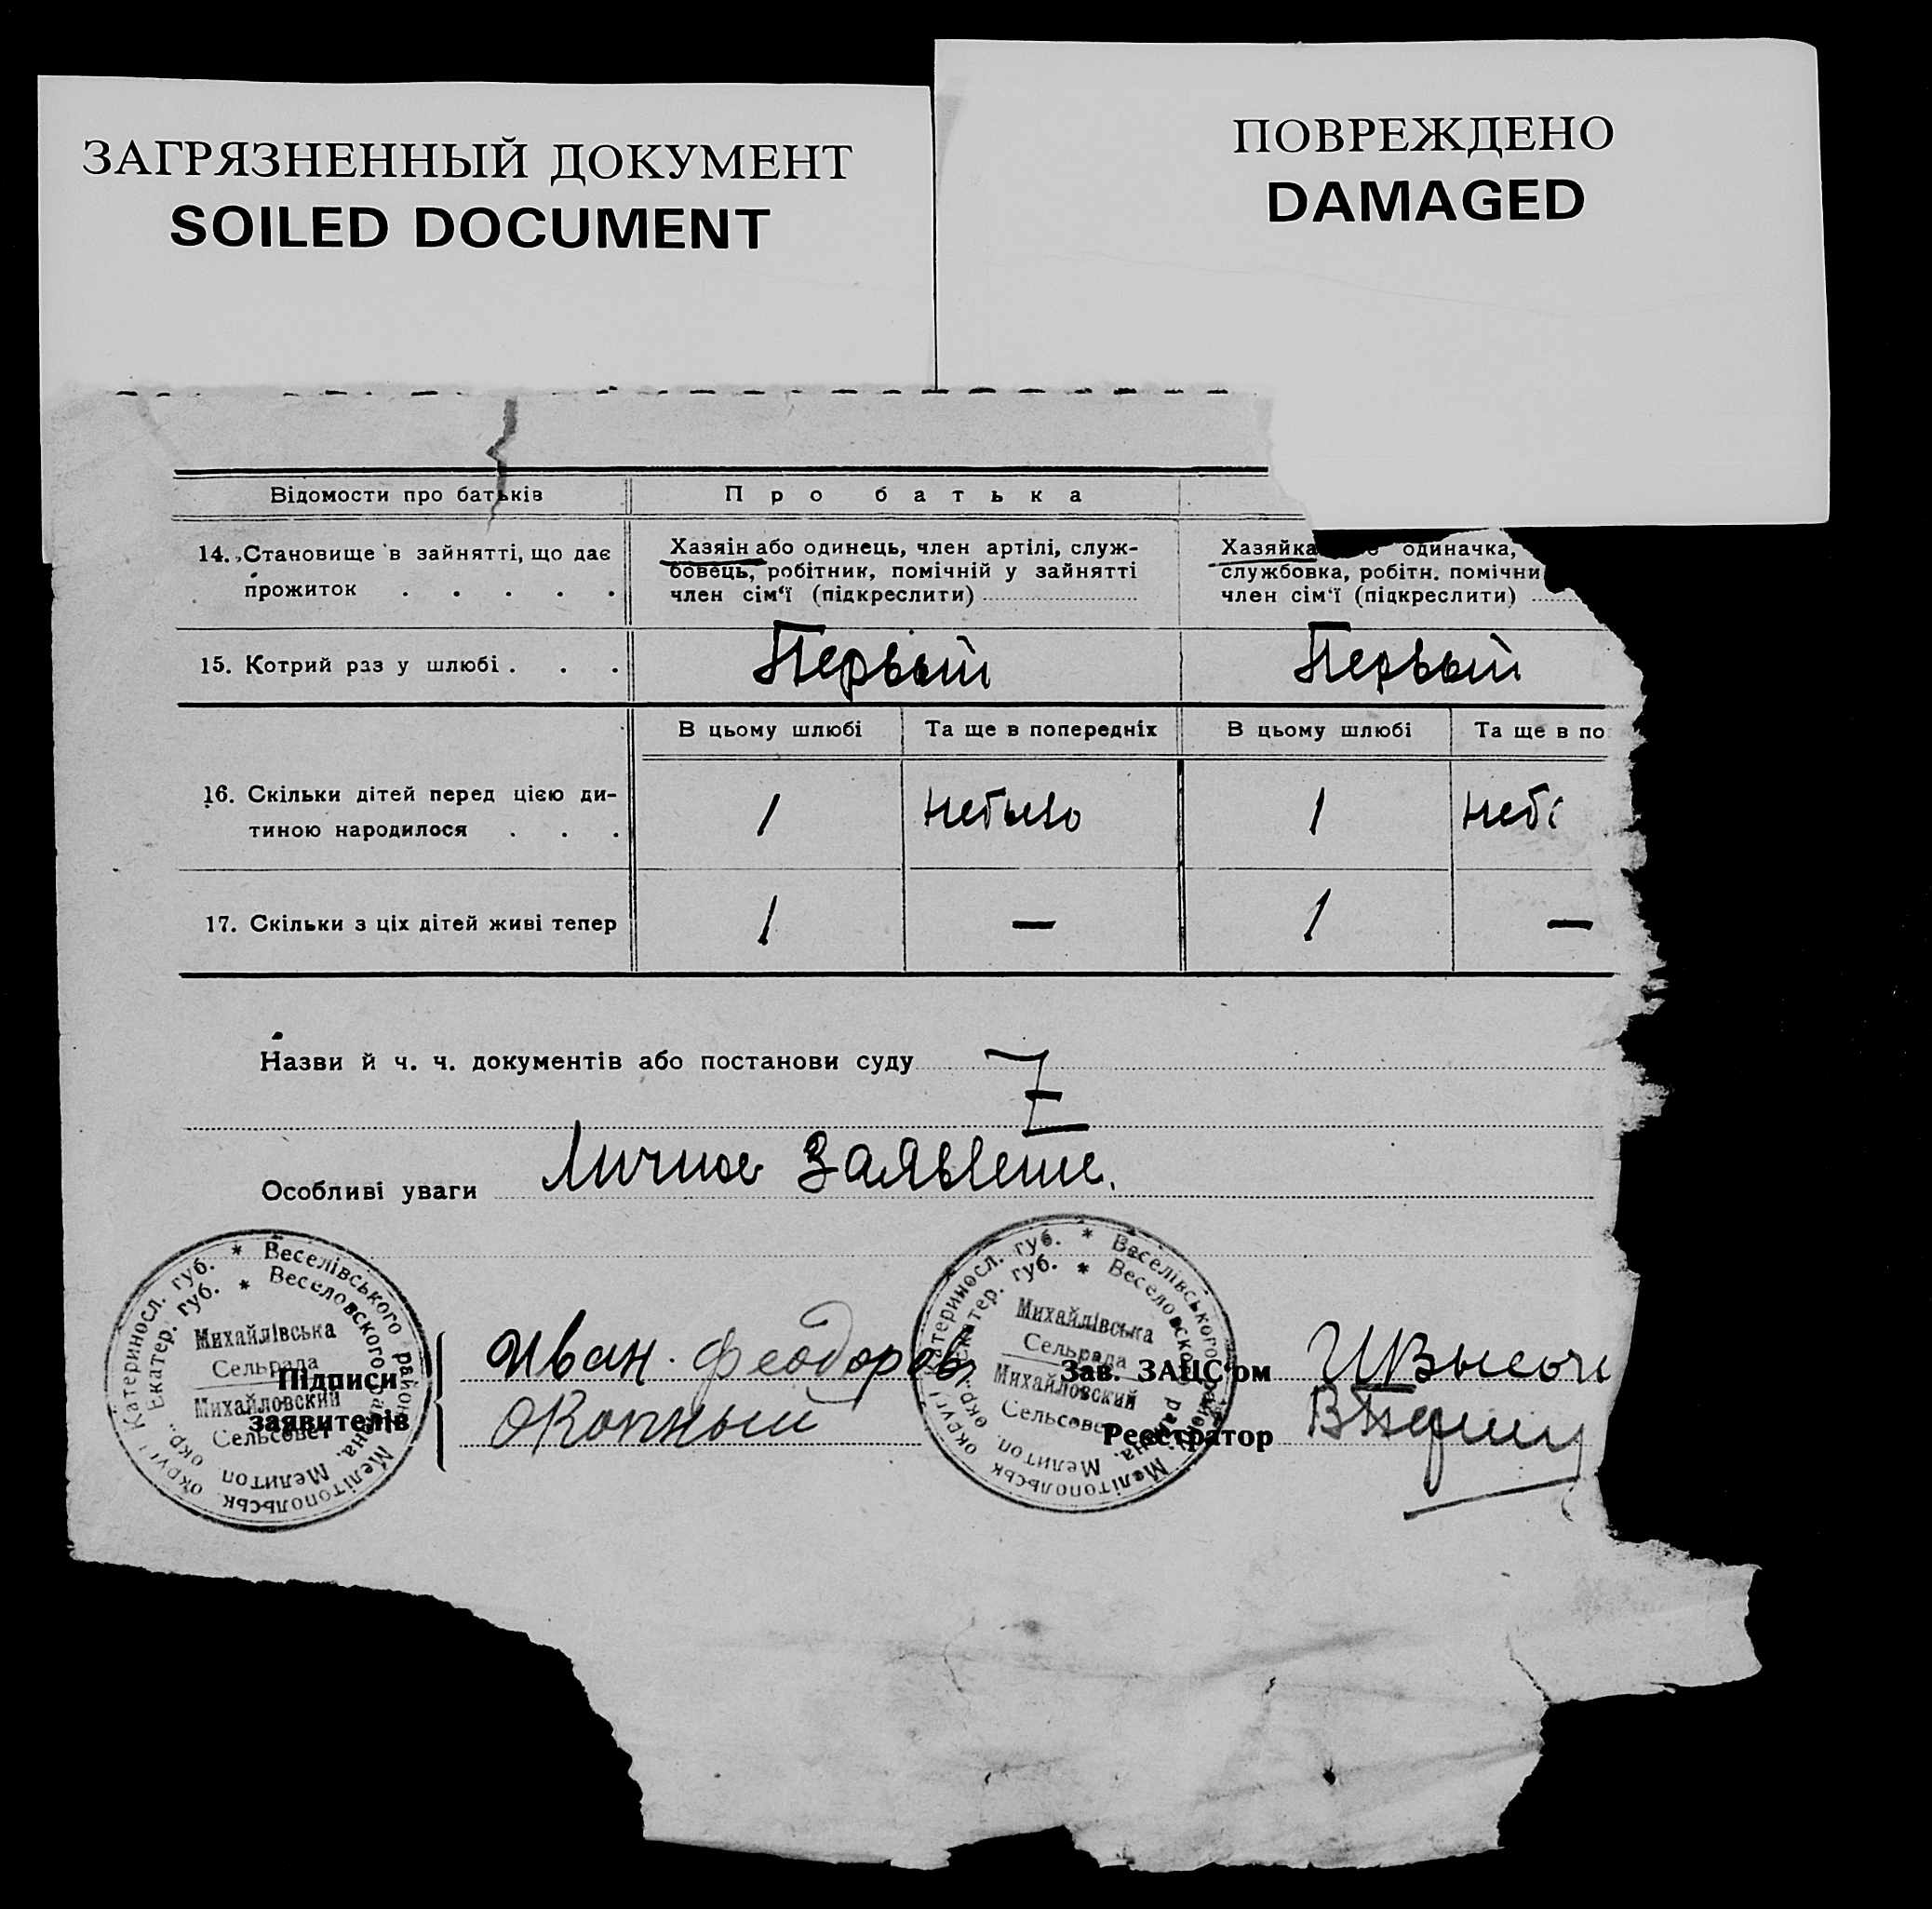 ЗАГРЯЗНЕННЫЙ ДОКУМЕНТ
SOILED DOCUMENT
ПОВРЕЖДЕНО
DAMAGED
Відомости про батьків
Про батька
14. Становище в зайнятті, що дає
прожиток . . . . .
Хазяін або одинець, член артілі, служ-
бовець, робітник, помічній у зайнятті
член сім'ї (підкреслити)
Хазяйка одиначка,
службовка, робітн. помічни
член сім'ї (підкреслити)
15. Котрий раз у шлюбі . . .
Первый
Первый
В цьому шлюбі
Та ще в попередніх
В цьому шлюбі
Та ще в по
16. Скільки дітей перед цією ди-
тиною народилося . . .
1
небыло
1
неб
17. Скільки з ціх дітей живі тепер
1
—
1
—
Назви й ч. ч. документів або постанови суду
Особливі уваги Личное Заявление.
Підписи
заявителів
Иван Феодоров
Окопный
Зав. ЗАЦС'ом
Реєстратор
* Веселівського району Мелітопольськ. округі Катериносл. губ.
* Веселовского района. Мелитоп. окр. Екатер. губ.
Михайлівська
Сельрада
Михайловский
Сельсовет
* Веселівського району Мелітопольськ. округі Катериносл. губ.
* Веселовского района. Мелитоп. окр. Екатер. губ.
Михайлівська
Сельрада
Михайловский
Сельсовет